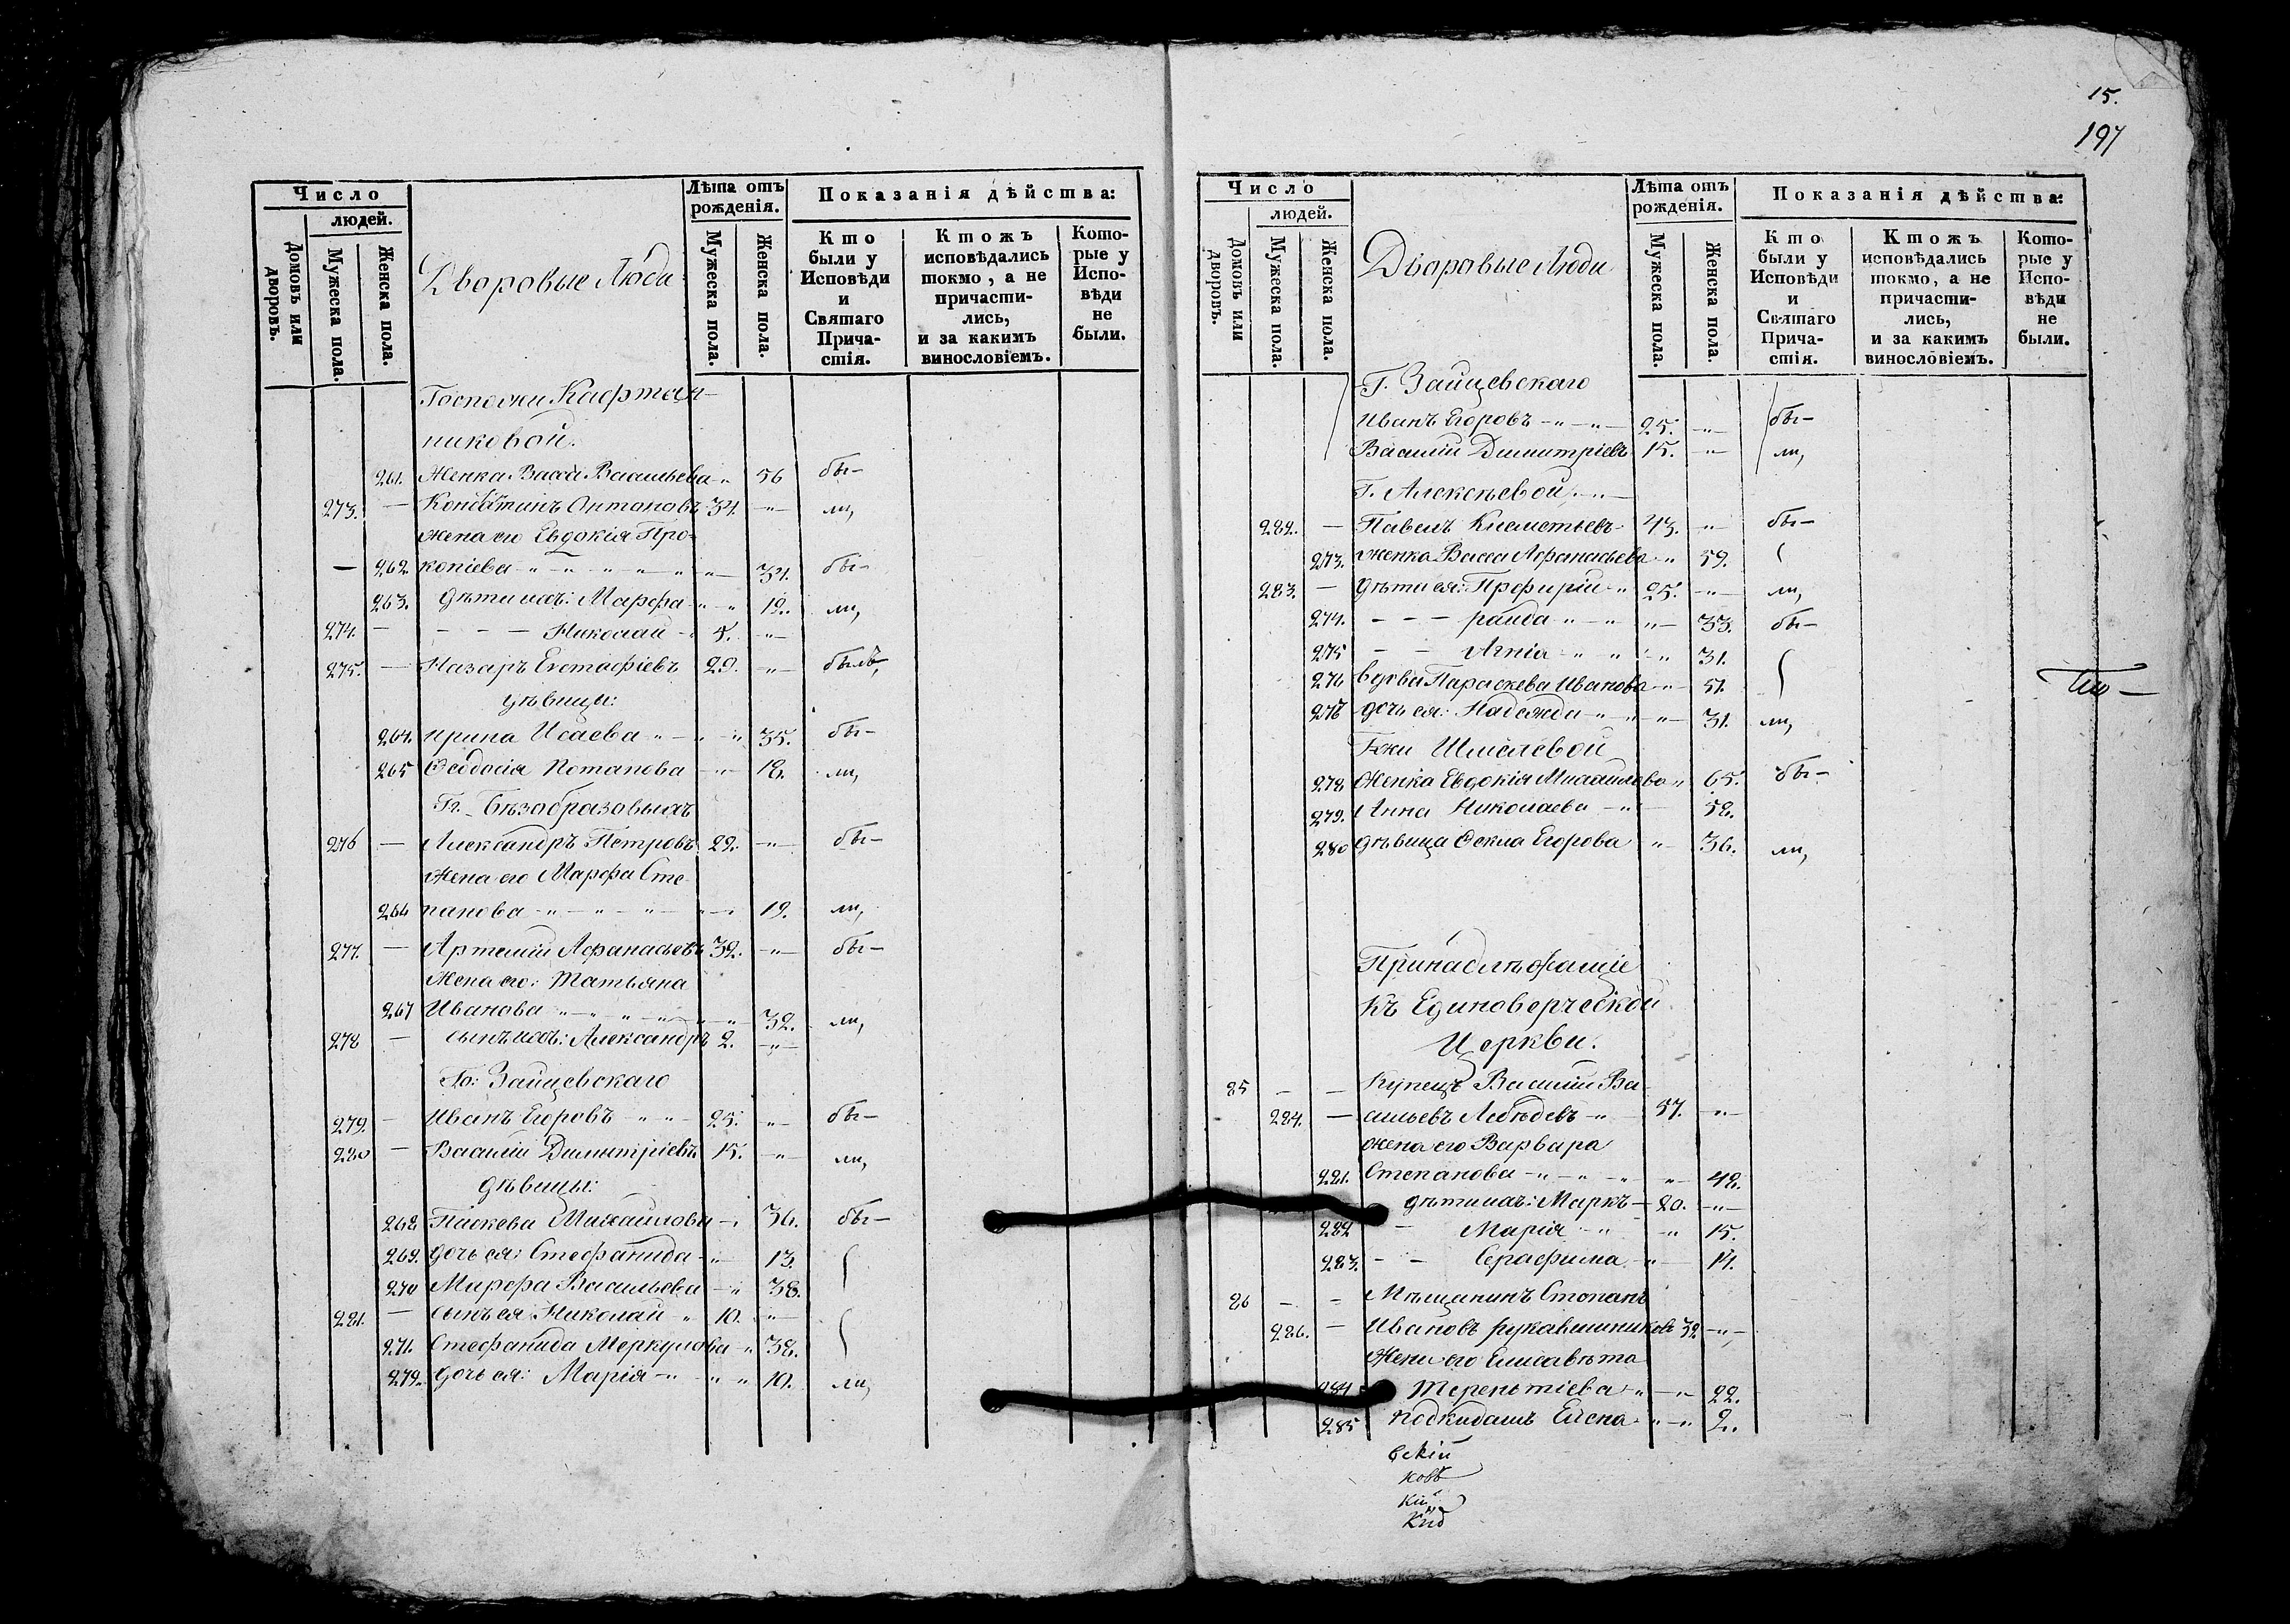 Число
людей.
Домовъ или дворовъ.
Мужеска пола.
Женска пола.
Дворовые Люди
Лѣта отъ рожденія.
Мужеска пола.
Женска пола.
Показанія дѣйства:
Кто были у Исповѣди и Святаго Причастія.
Ктожъ исповѣдались токмо, а не причастились, и за какимъ винословіемъ.
Которые у Исповѣди не были.
Госпожи Кафтан-
никовой.
261. Женка Васса Васильева 56 бы-
273. — Констатинъ Антоновъ 34. ли,
жена его Евдокія Про-
— 262. копіева 34. бы-
263. дѣти ихъ: Марфа 12. ли,
274. — Николай 5.
275. — Назаръ Евстафіевъ 29. былъ,
дѣвицы:
264. Ирина Исаева 35. бы-
265 Ѳеодосія Потапова 18. ли,
Гг. Безобразовыхъ
276 — Александръ Петровъ 22. бы-
жена его Марфа Сте-
266 панова 19. ли,
277. — Артемій Афанасьевъ 32. бы-
жена его: Татьяна
267 Иванова 32. ли,
278 — сынъ ихъ: Александръ 2.
Го: Зайцевскаго
279. — Иванъ Егоровъ 25. бы-
280 — Василій Димитріевъ 15. ли,
дѣвицы:
268 Паскева Михайлова 36. бы-
269. дочь ея: Стефанида 13.
270 Марфа Васильева 38.
281. — сынъ ея: Николай 10.
271. Стефанида Меркулова 38.
272. дочь ея: Марія 10. ли,
15.
197
Число
людей.
Домовъ или дворовъ.
Мужеска пола.
Женска пола.
Дворовые Люди
Лѣта отъ рожденія.
Мужеска пола.
Женска пола.
Показанія дѣйства:
Кто были у Исповѣди и Святаго Причастія.
Ктожъ исповѣдались токмо, а не причастились, и за какимъ винословіемъ.
Которые у Исповѣди не были.
Г. Зайцевскаго
Иванъ Егоровъ 25. бы-
Василій Димитріевъ 15. ли,
Г. Алексѣевой
282. — Павелъ Клементьевъ 43. бы-
273. женка Васса Афанасьева 59.
283. — дѣти ея: Прфирій 25. ли,
274. раида 33. бы-
275 Агнія 31.
276 вдова Параскева Иванова 51.
277 дочь ея: Надежда 31. ли,
Гжи Шмелевой
278 Женка Евдокія Михайлова 65. бы-
279. Анна Николаева 58.
280 дѣвица Ѳекла Егорова 36. ли,
Принадлѣжащіе
къ Единоверческой
Церкви.
85 — — Купецъ Василій Ва-
284. — сильевъ Лебѣдевъ 57.
жена его Варвара
281. Степанова 48.
дѣти ихъ: Маркъ 20.
282 Марія 15.
283. Серафима 14.
86 — — Мѣщанинъ Степанъ
286. — Ивановъ рукавишниковъ 32
Жена его Елисавѣта
284 Терентіева 22.
285 подкидышъ Елена 2.
вскій
ковъ
кій